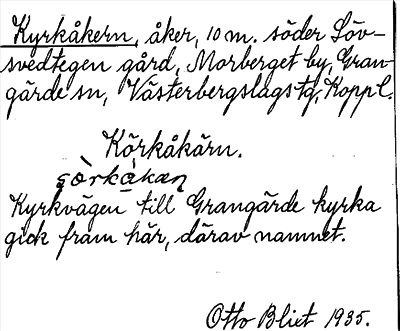 Kyrkåkern, åker, 10 m. söder Löv-
svedtegen gård, Morberget by, Gran-
gärde sn, Västerbergslags tg, Koppl.
Körkåkärn.
Kyrkvägen till Grangärde kyrka
gick fram här, därav namnet.
Otto Bliet 1935.